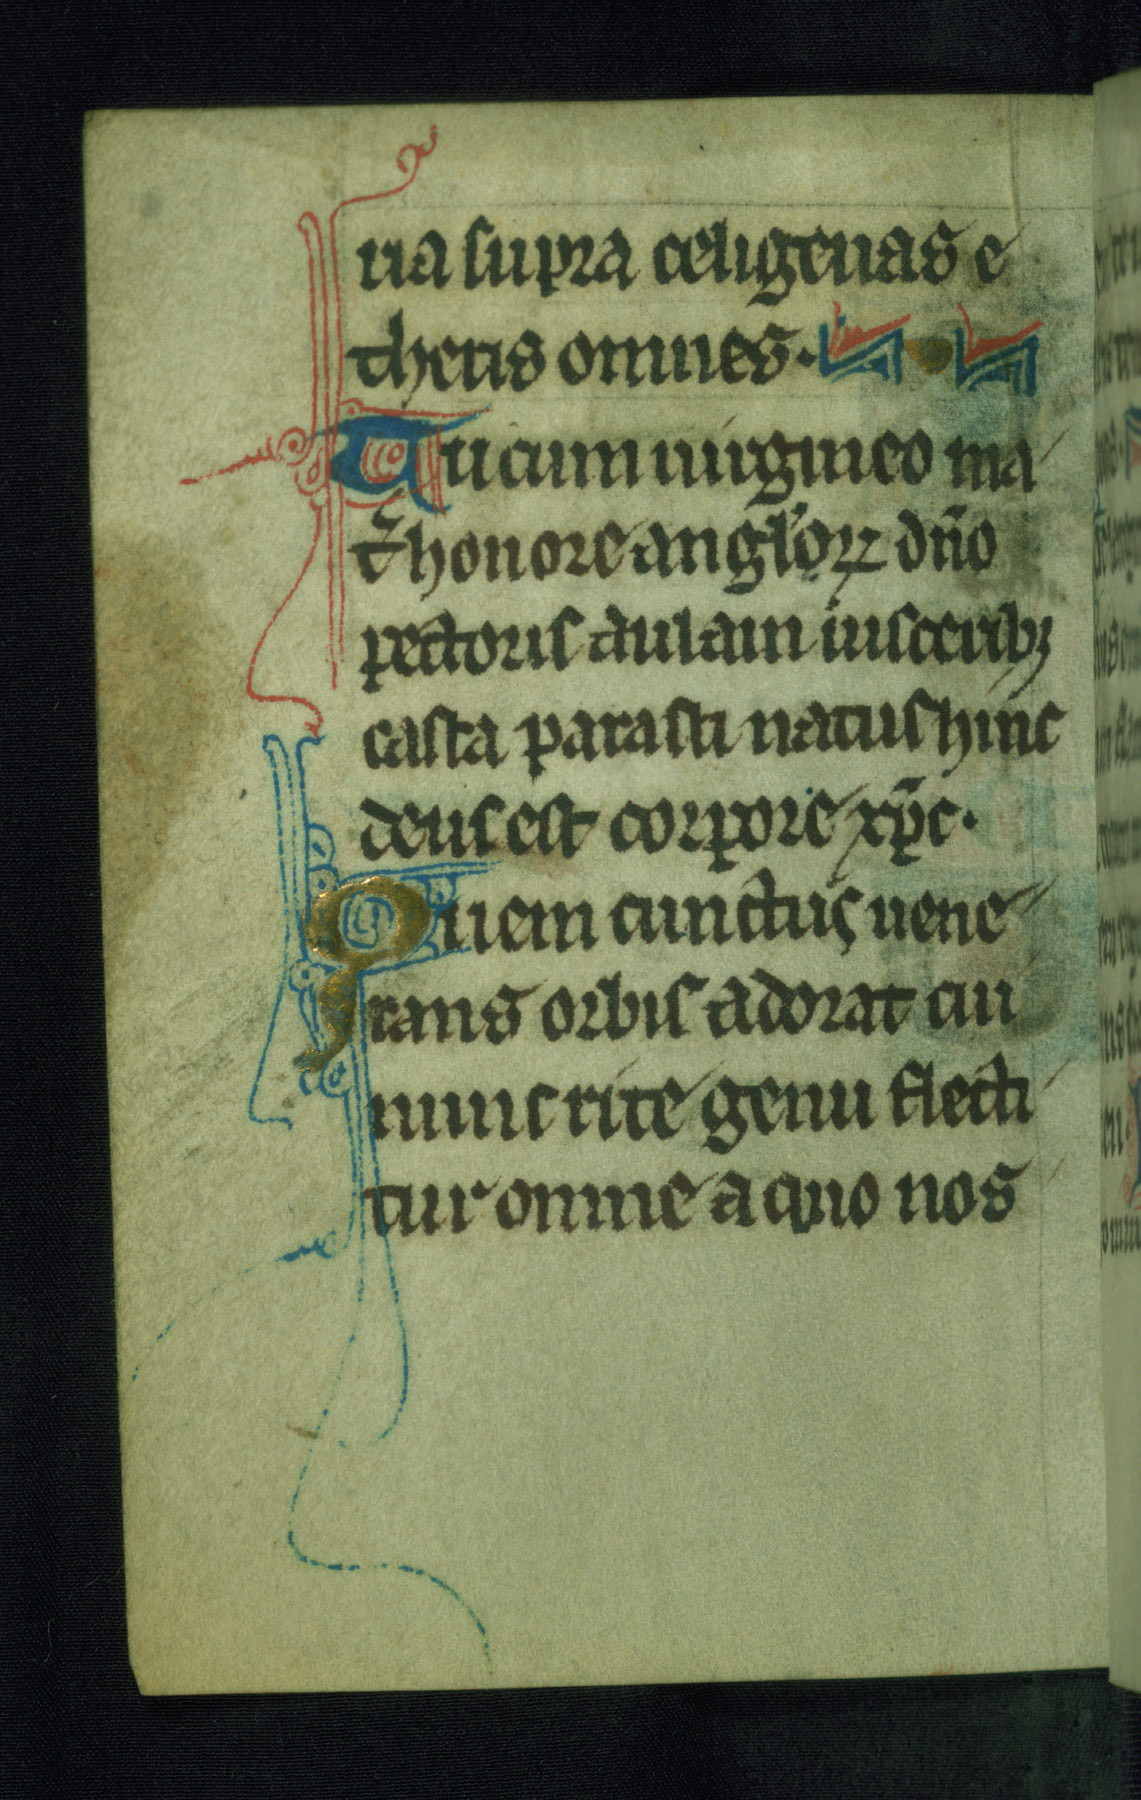 ria supra celigenas e
theris omnes.
Tu cum uirgineo ma
t̄ honore anglõꝝ dño
pectoris aulam uisceribꝫ
casta parasti natus hinc
deus est corpore xp̄c.
Quem cunctus uene
rans orbis adorat cui
nunc rite genu flecti
tur omne a quo nos